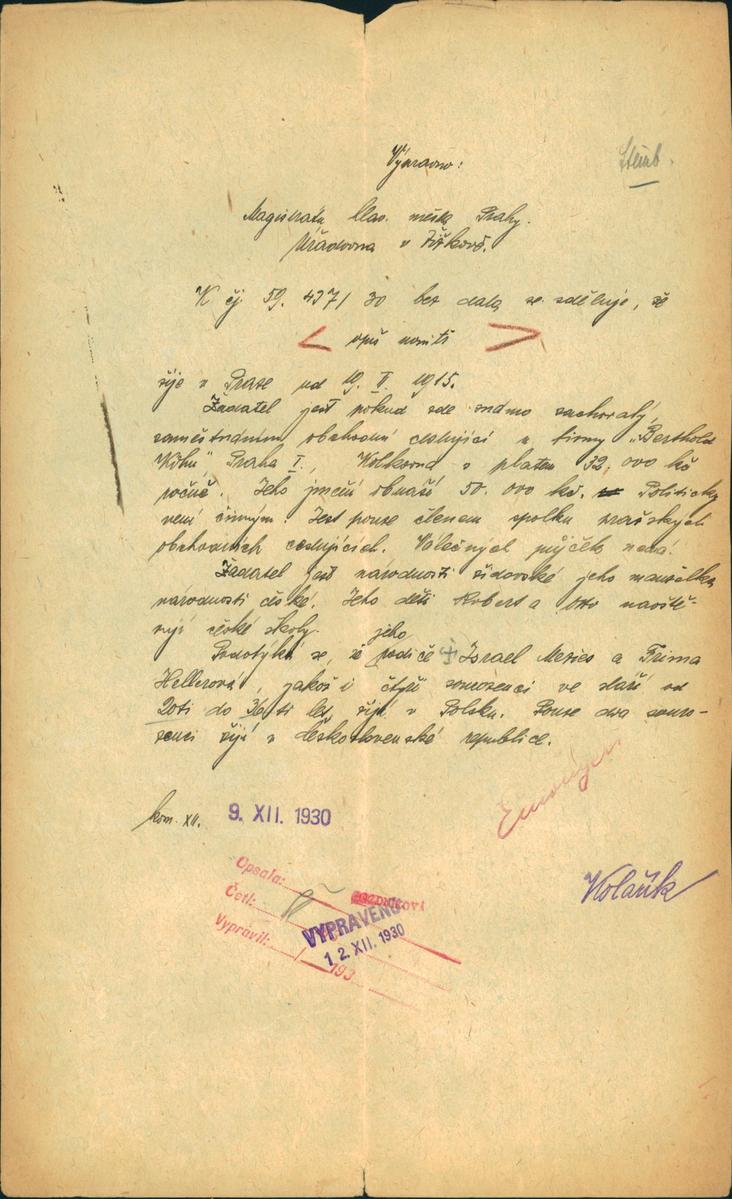 Výnosno:
Magistrátu hlav. města Prahy.
Úřadovna v Žižkově.
K čj 59.437/30 bez data se sděluje, že
< opiš uvnitř >
žije v Praze od 19. II. 1915.
Žadatel jest pokud zde známo zachovalý,
zaměstnáním obchodní cestující u firmy "Berthold
Kohn", Praha I., Kolkovna s platem 32.000 kč
ročně. Jeho jmění obnaší 50.000 kč. Politicky
není činným. Jest pouze členem spolku pražských
obchodních cestujících. Válečných půjček nemá.
Žadatel jest národnosti židovské jeho manželka
národnosti české. Jeho děti Robert a Otto navště-
vují české školy.
Podotýká se, že jeho rodiče Israel Meries a
Hellerová, jakož i čtyři sourozenci ve stáří od
20ti do 36ti let žijí v Polsku. Pouze dva souro-
zenci žijí v Československé republice.
kom. XII. 9. XII. 1930
Kolařík
Opsala:
Četl:
Vypravil:
193
VYPRAVENO
12. XII. 1930